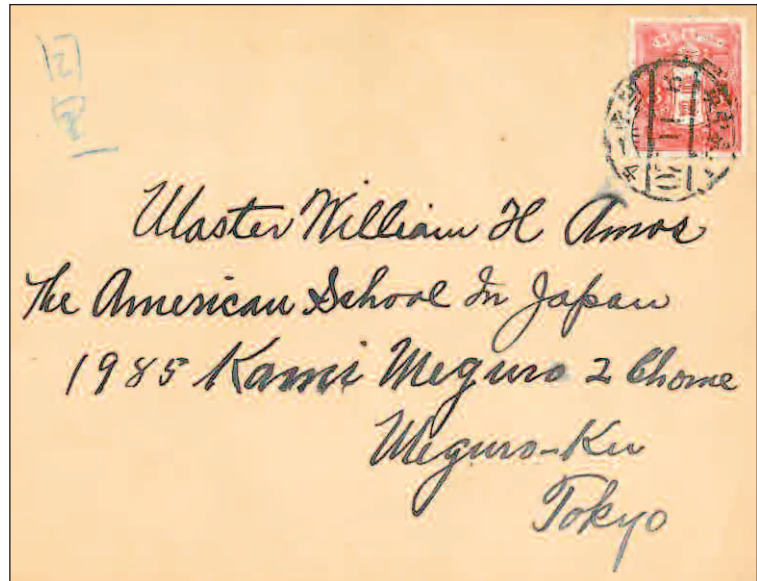 目
黒
Master William H Amos
The American School In Japan
1985 Kami Meguro 2 Chome
Meguro-Ku
Tokyo